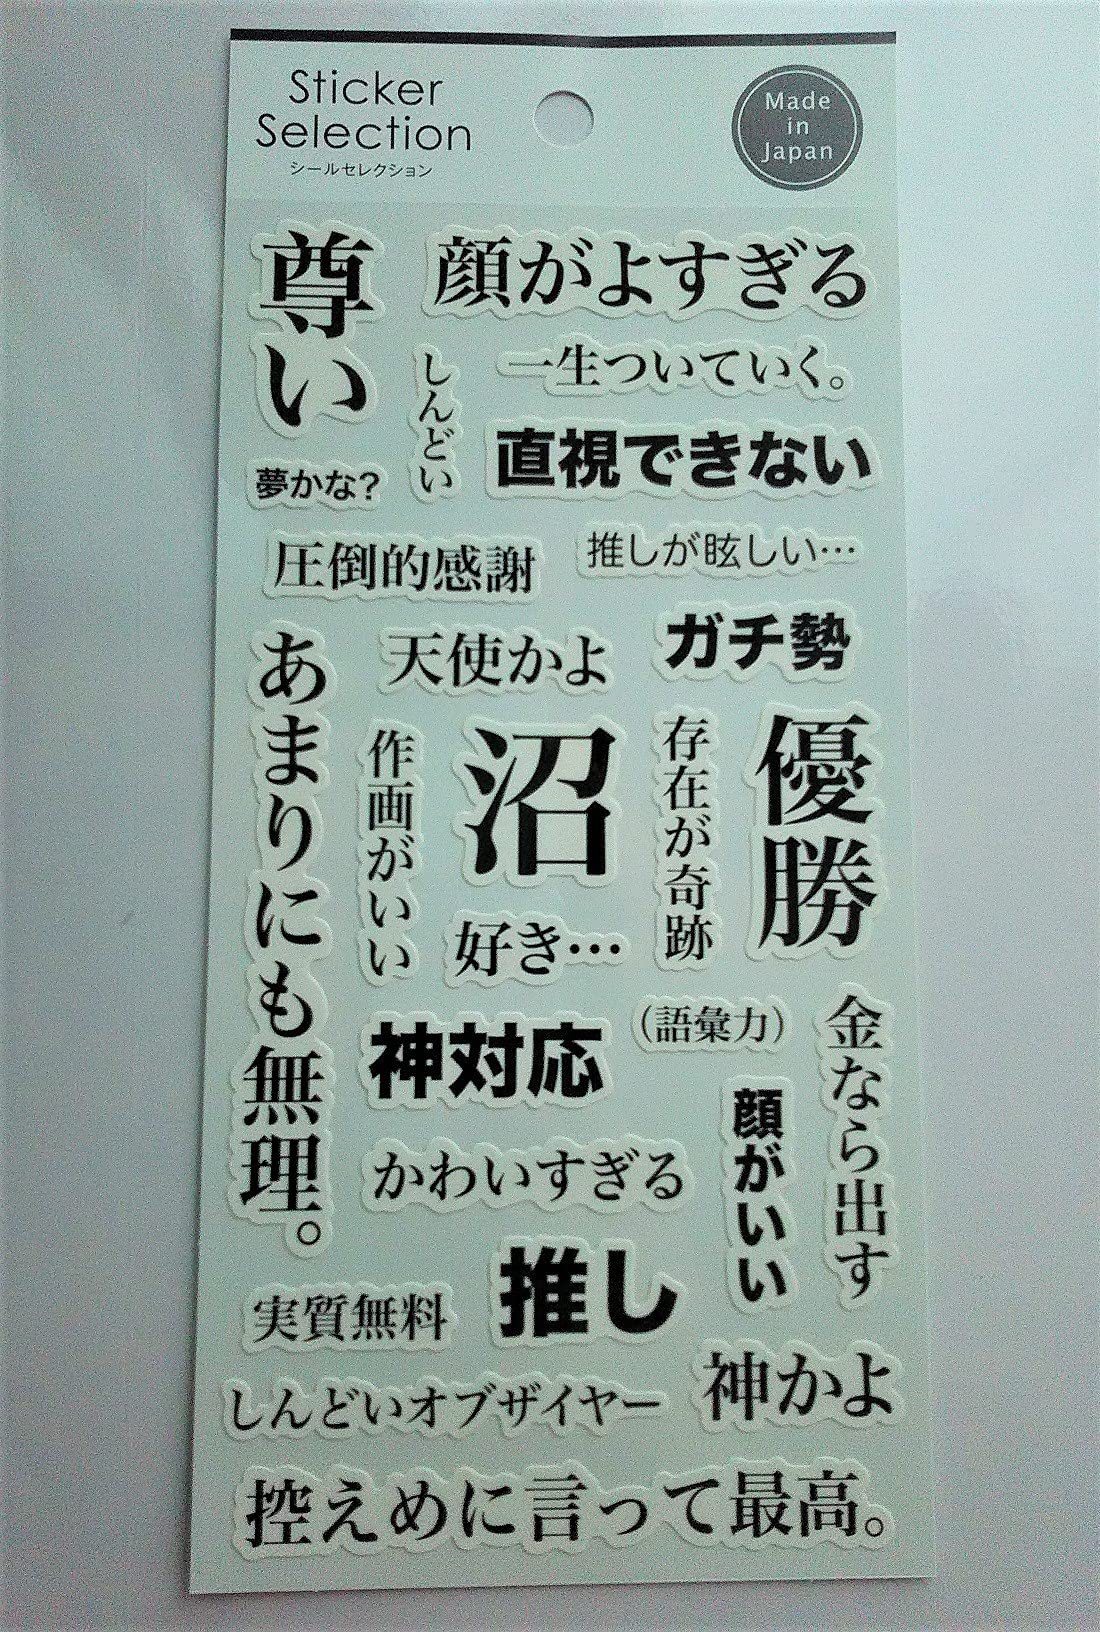 Sticker
Selection
シールセレクション
Made
in
Japan
尊い
顔がよすぎる
しんどい
一生ついていく。
直視できない
夢かな?
圧倒的感謝
推しが眩しい…
あまりにも無理。
天使かよ
ガチ勢
作画がいい
沼
存在が奇跡
優勝
好き…
神対応
（語彙力）
金なら出す
顔がいい
かわいすぎる
推し
実質無料
神かよ
しんどいオブザイヤー
控えめに言って最高。